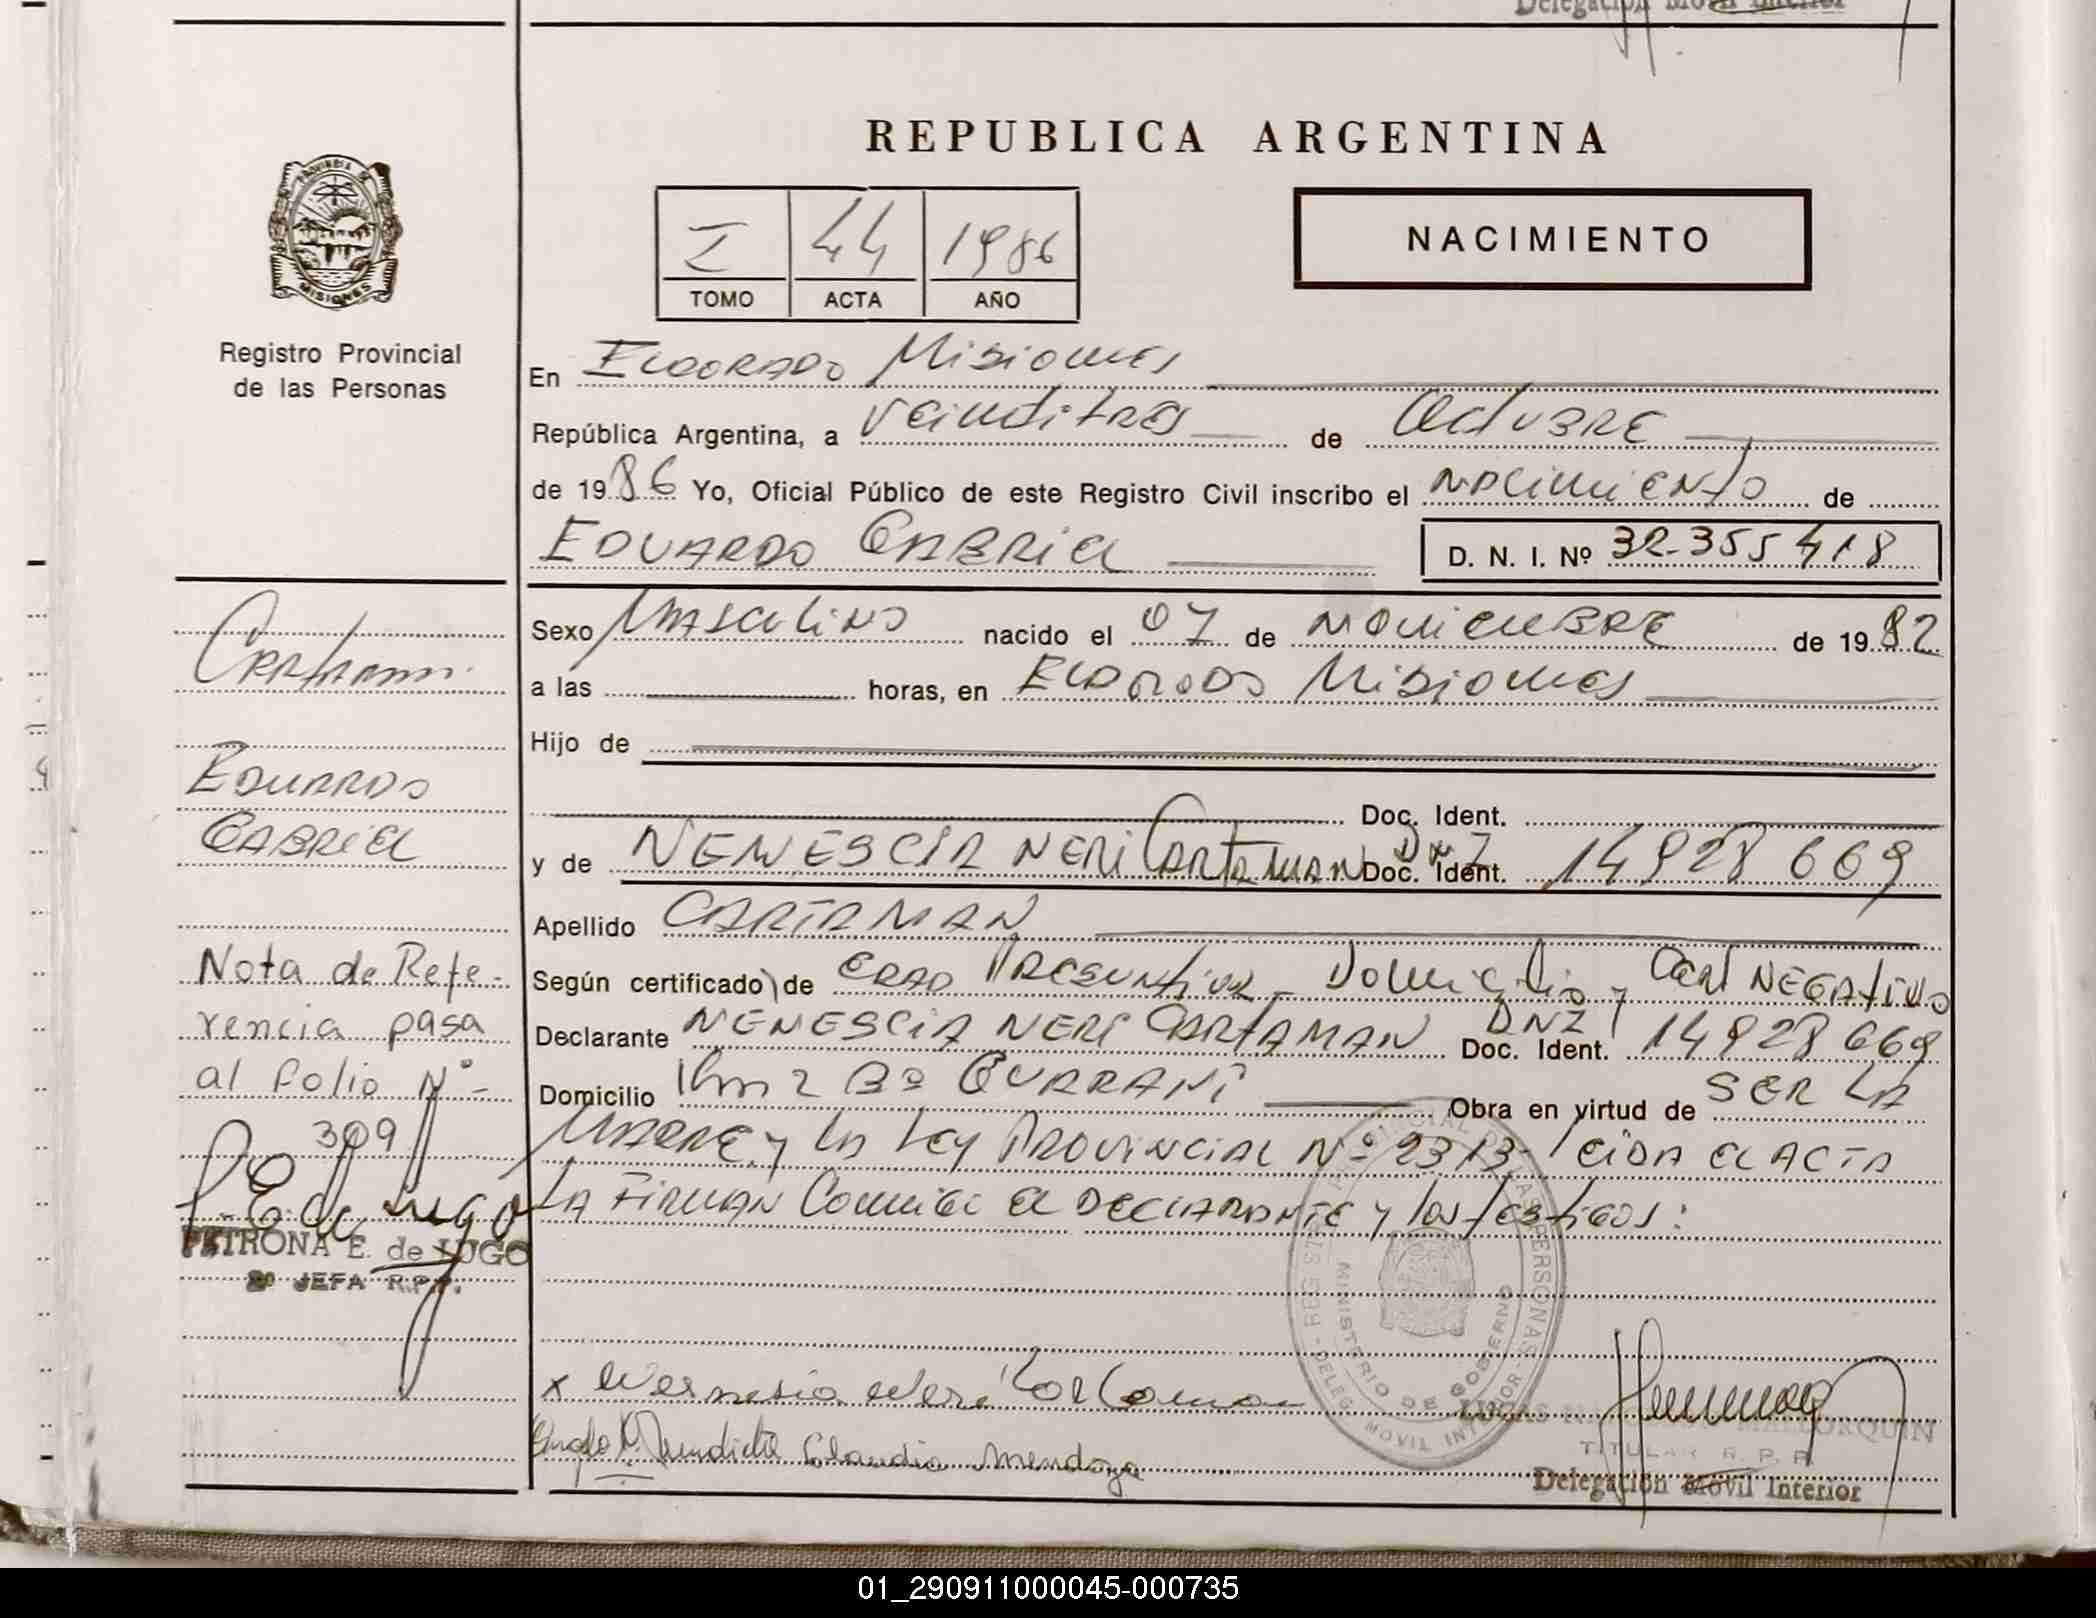 Delegación Móvil Interior
REPUBLICA ARGENTINA
PROVINCIA DE
MISIONES
Registro Provincial
de las Personas
I 44 1986
TOMO ACTA AÑO
NACIMIENTO
En ELDORADO Misiones
República Argentina, a veintitres de Octubre
de 1986 Yo, Oficial Público de este Registro Civil inscribo el nacimiento de
EDUARDO GABRIEL D. N. I. Nº 32.355.418
Sexo Masculino nacido el 07 de Noviembre de 1982
a las horas, en ELDORADO Misiones
Hijo de
Doc. Ident.
y de NEMESCIA NERI CARTAMAN Doc. Ident. DNI 14928669
Apellido CARTAMAN
Según certificado de EDAD PRESUNTIVA - Domicilio y Cert NEGATIVO
Declarante NEMESCIA NERI CARTAMAN Doc. Ident. DNI 14928669
Domicilio Km 2 Bº GUARANI Obra en virtud de SER LA
MADRE y LA LEY PROVINCIAL Nº 2313- LEIDA EL ACTA
LA FIRMAN Conmigo EL DECLARANTE y los testigos:
Cartaman
EDUARDO
GABRIEL
Nota de Refe-
rencia pasa
al folio Nº-
309
P. E. de Lugo
PETRONA E. de LUGO
2º JEFA R.P.P.
REGISTRO PROVINCIAL DE LAS PERSONAS - DELEG. MOVIL INTERIOR -
MINISTERIO DE GOBIERNO
x Nemesia Neri Cartaman
Claudio Mendoza
LUGAS MALLORQUIN
TITULAR R. P. P.
Delegación Móvil Interior
01_290911000045-000735